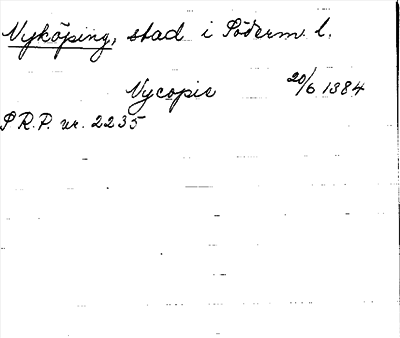 Nyköping, stad i Söderm. l.
Nycopie 20/6 1384
S R.P. nr. 2235